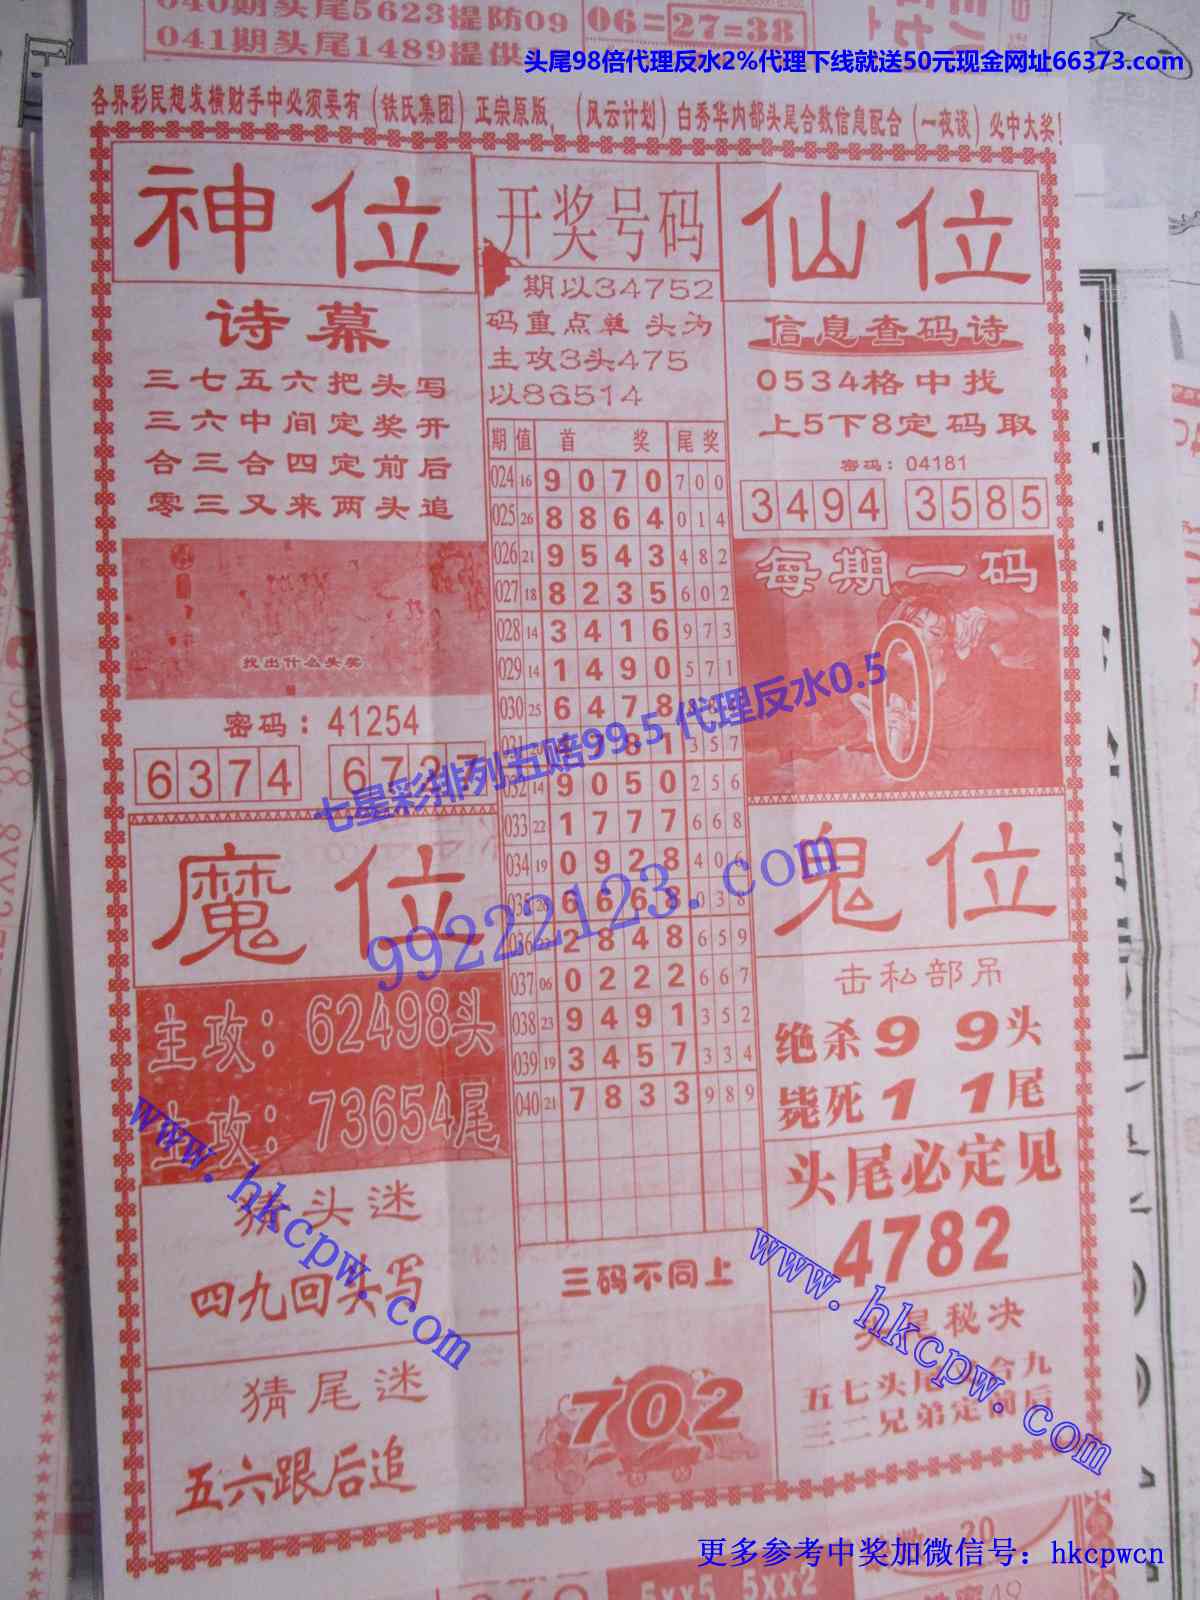 040期头尾5623提防09
041期头尾1489提供
06=27=38
头尾98倍代理反水2%代理下线就送50元现金网址66373.com
各界彩民想发横财手中必须要有（铁氏集团）正宗原版，（风云计划）白秀华内部头尾合数信息配合（一夜谈）必中大奖！
神位
诗幕
三七五六把头写
三六中间定奖开
合三合四定前后
零三又来两头追
找出什么头奖
密码：41254
6374 6737
开奖号码
期以34752
码重点单头为
主攻3头475
以86514
期 值 首 奖 尾奖
024 16 9 0 7 0 7 0 0
025 26 8 8 6 4 0 1 4
026 21 9 5 4 3 4 8 2
027 18 8 2 3 5 6 0 2
028 14 3 4 1 6 9 7 3
029 14 1 4 9 0 5 7 1
030 25 6 4 7 8
031 20 8 1 3 5 7
032 14 9 0 5 0 2 5 6
033 22 1 7 7 7 6 6 8
034 19 0 9 2 8 4 0 6
035 26 6 6 6 8 0 3 8
036 2 8 4 8 6 5 9
037 06 0 2 2 2 6 6 7
038 23 9 4 9 1 3 5 2
039 19 3 4 5 7 3 3 4
040 21 7 8 3 3 9 8 9
三码不同上
702
仙位
信息查码诗
0534格中找
上5下8定码取
密码：04181
3494 3585
每期一码
0
七星彩排列五赔99.5 代理反水0.5
99222123.com
魔位
主攻：62498头
主攻：73654尾
猜头迷
四九回头写
猜尾迷
五六跟后追
鬼位
击私部吊
绝杀9 9头
毙死1 1尾
头尾必定见
4782
秘决
五七头尾 合九
三二兄弟定前后
www.hkcpw.com
www.hkcpw.com
更多参考中奖加微信号：hkcpwcn
20
5xx5 5xx2